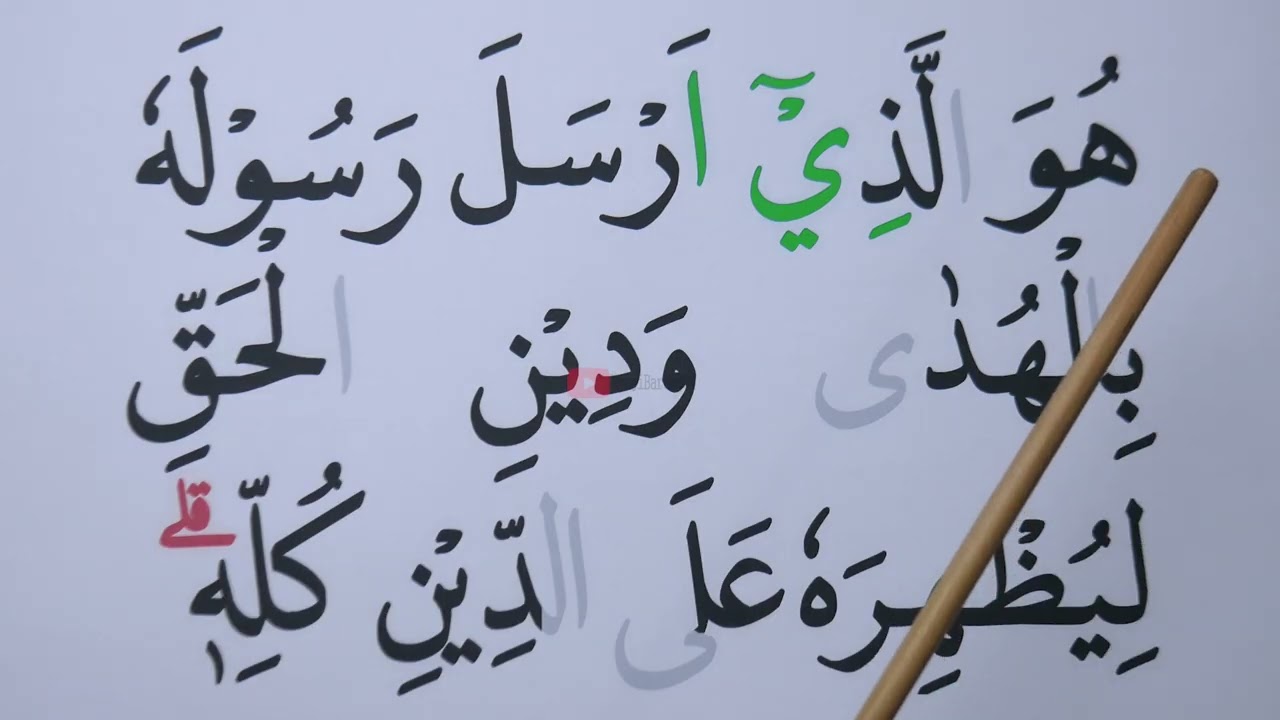 هُوَ الَّذِيْٓ اَرْسَلَ رَسُوْلَهٗ
بِالْهُدٰى وَدِيْنِ الْحَقِّ
لِيُظْهِرَهٗ عَلَى الدِّيْنِ كُلِّهٖ ۗ